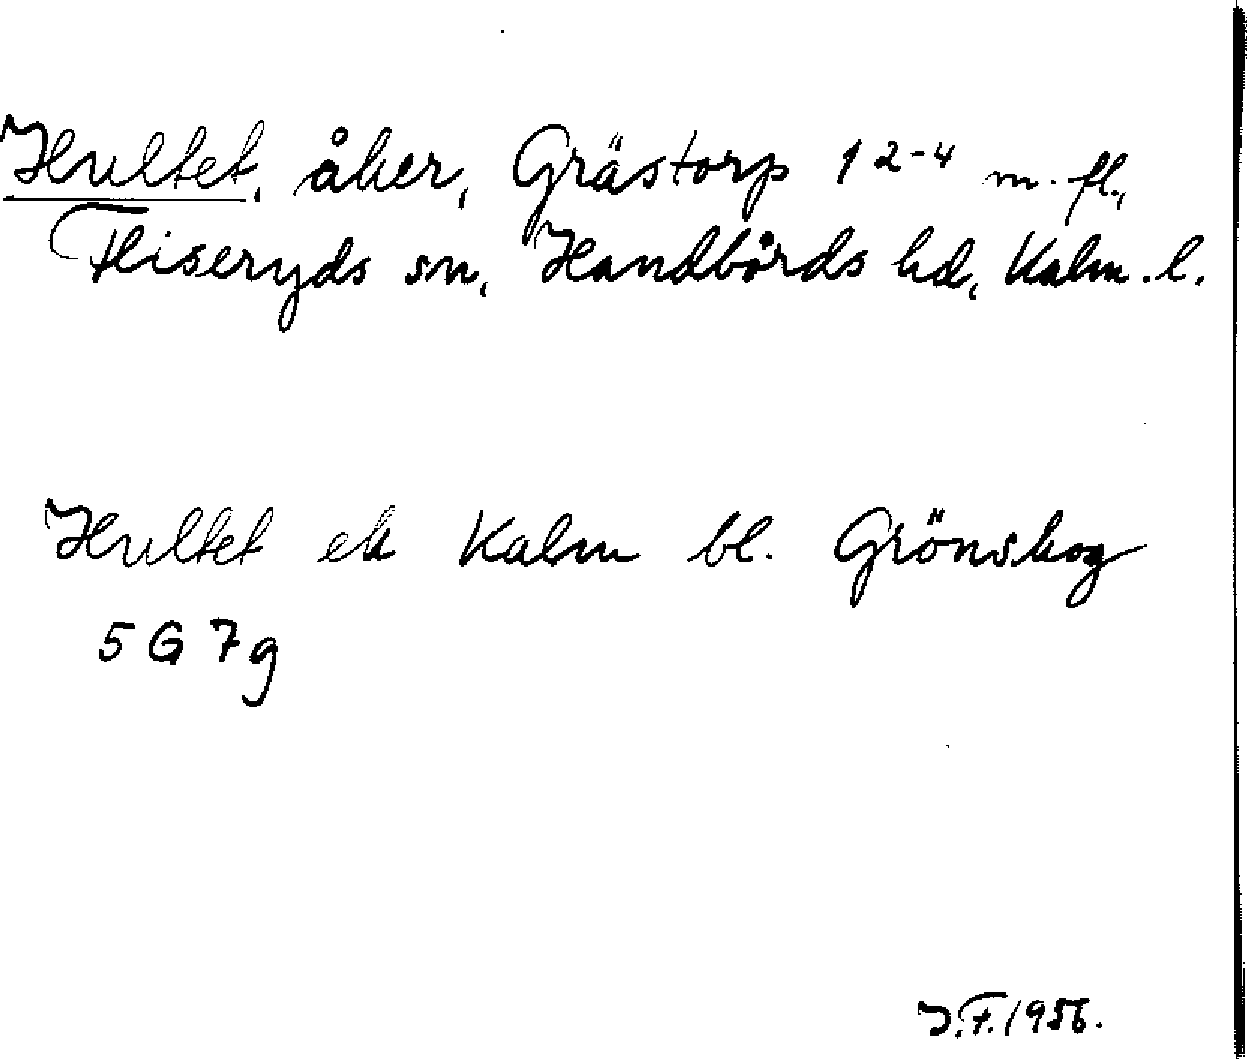 Hultet, åker, Grästorp 1 2-4 m.fl.,
Fliseryds sn, Handbörds hd, Kalm. l.
Hultet ek Kalm bl. Grönskog
5 G 7 g
J.F. 1956.